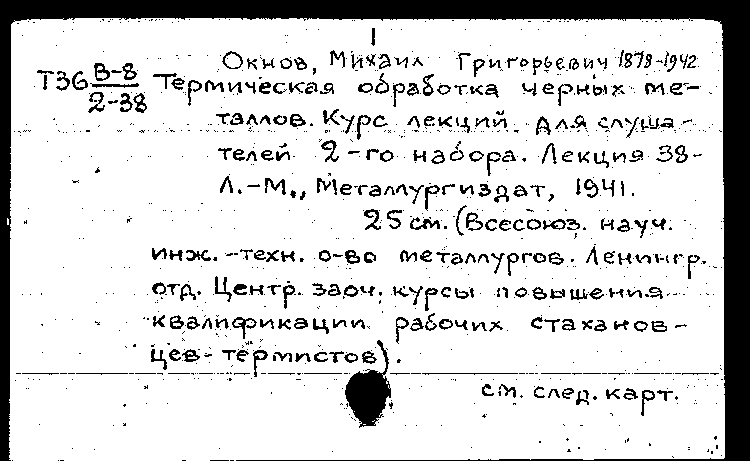 Окнов, Михаил Григорьевич 1878-1942
Т36 В-8 Термическая обработка черных ме-
2-38
таллов. Курс лекций для слуша-
телей 2-го набора. Лекция 38-
Л.-М., Металлургиздат, 1941.
25 см. (Всесоюз. науч.
инж.-техн. о-во металлургов. Ленингр.
отд. Центр. заоч. курсы повышения
квалификации рабочих стаханов-
цев-термистов).
см. след. карт.